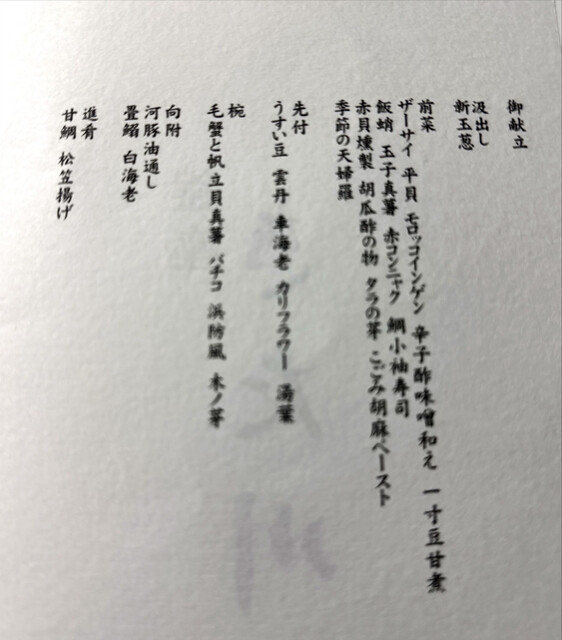 御献立
汲出し
新玉葱
前菜
ザーサイ 平貝 モロッコインゲン 辛子酢味噌和え 一寸豆甘煮
飯蛸 玉子真薯 赤コンニャク 鯛小袖寿司
赤貝燻製 胡瓜酢の物 タラの芽 こごみ胡麻ペースト
季節の天婦羅
先付
うすい豆 雲丹 車海老 カリフラワー 湯葉
椀
毛蟹と帆立貝真薯 バチコ 浜防風 木ノ芽
向附
河豚油通し
畳鰯 白海老
進肴
甘鯛 松笠揚げ